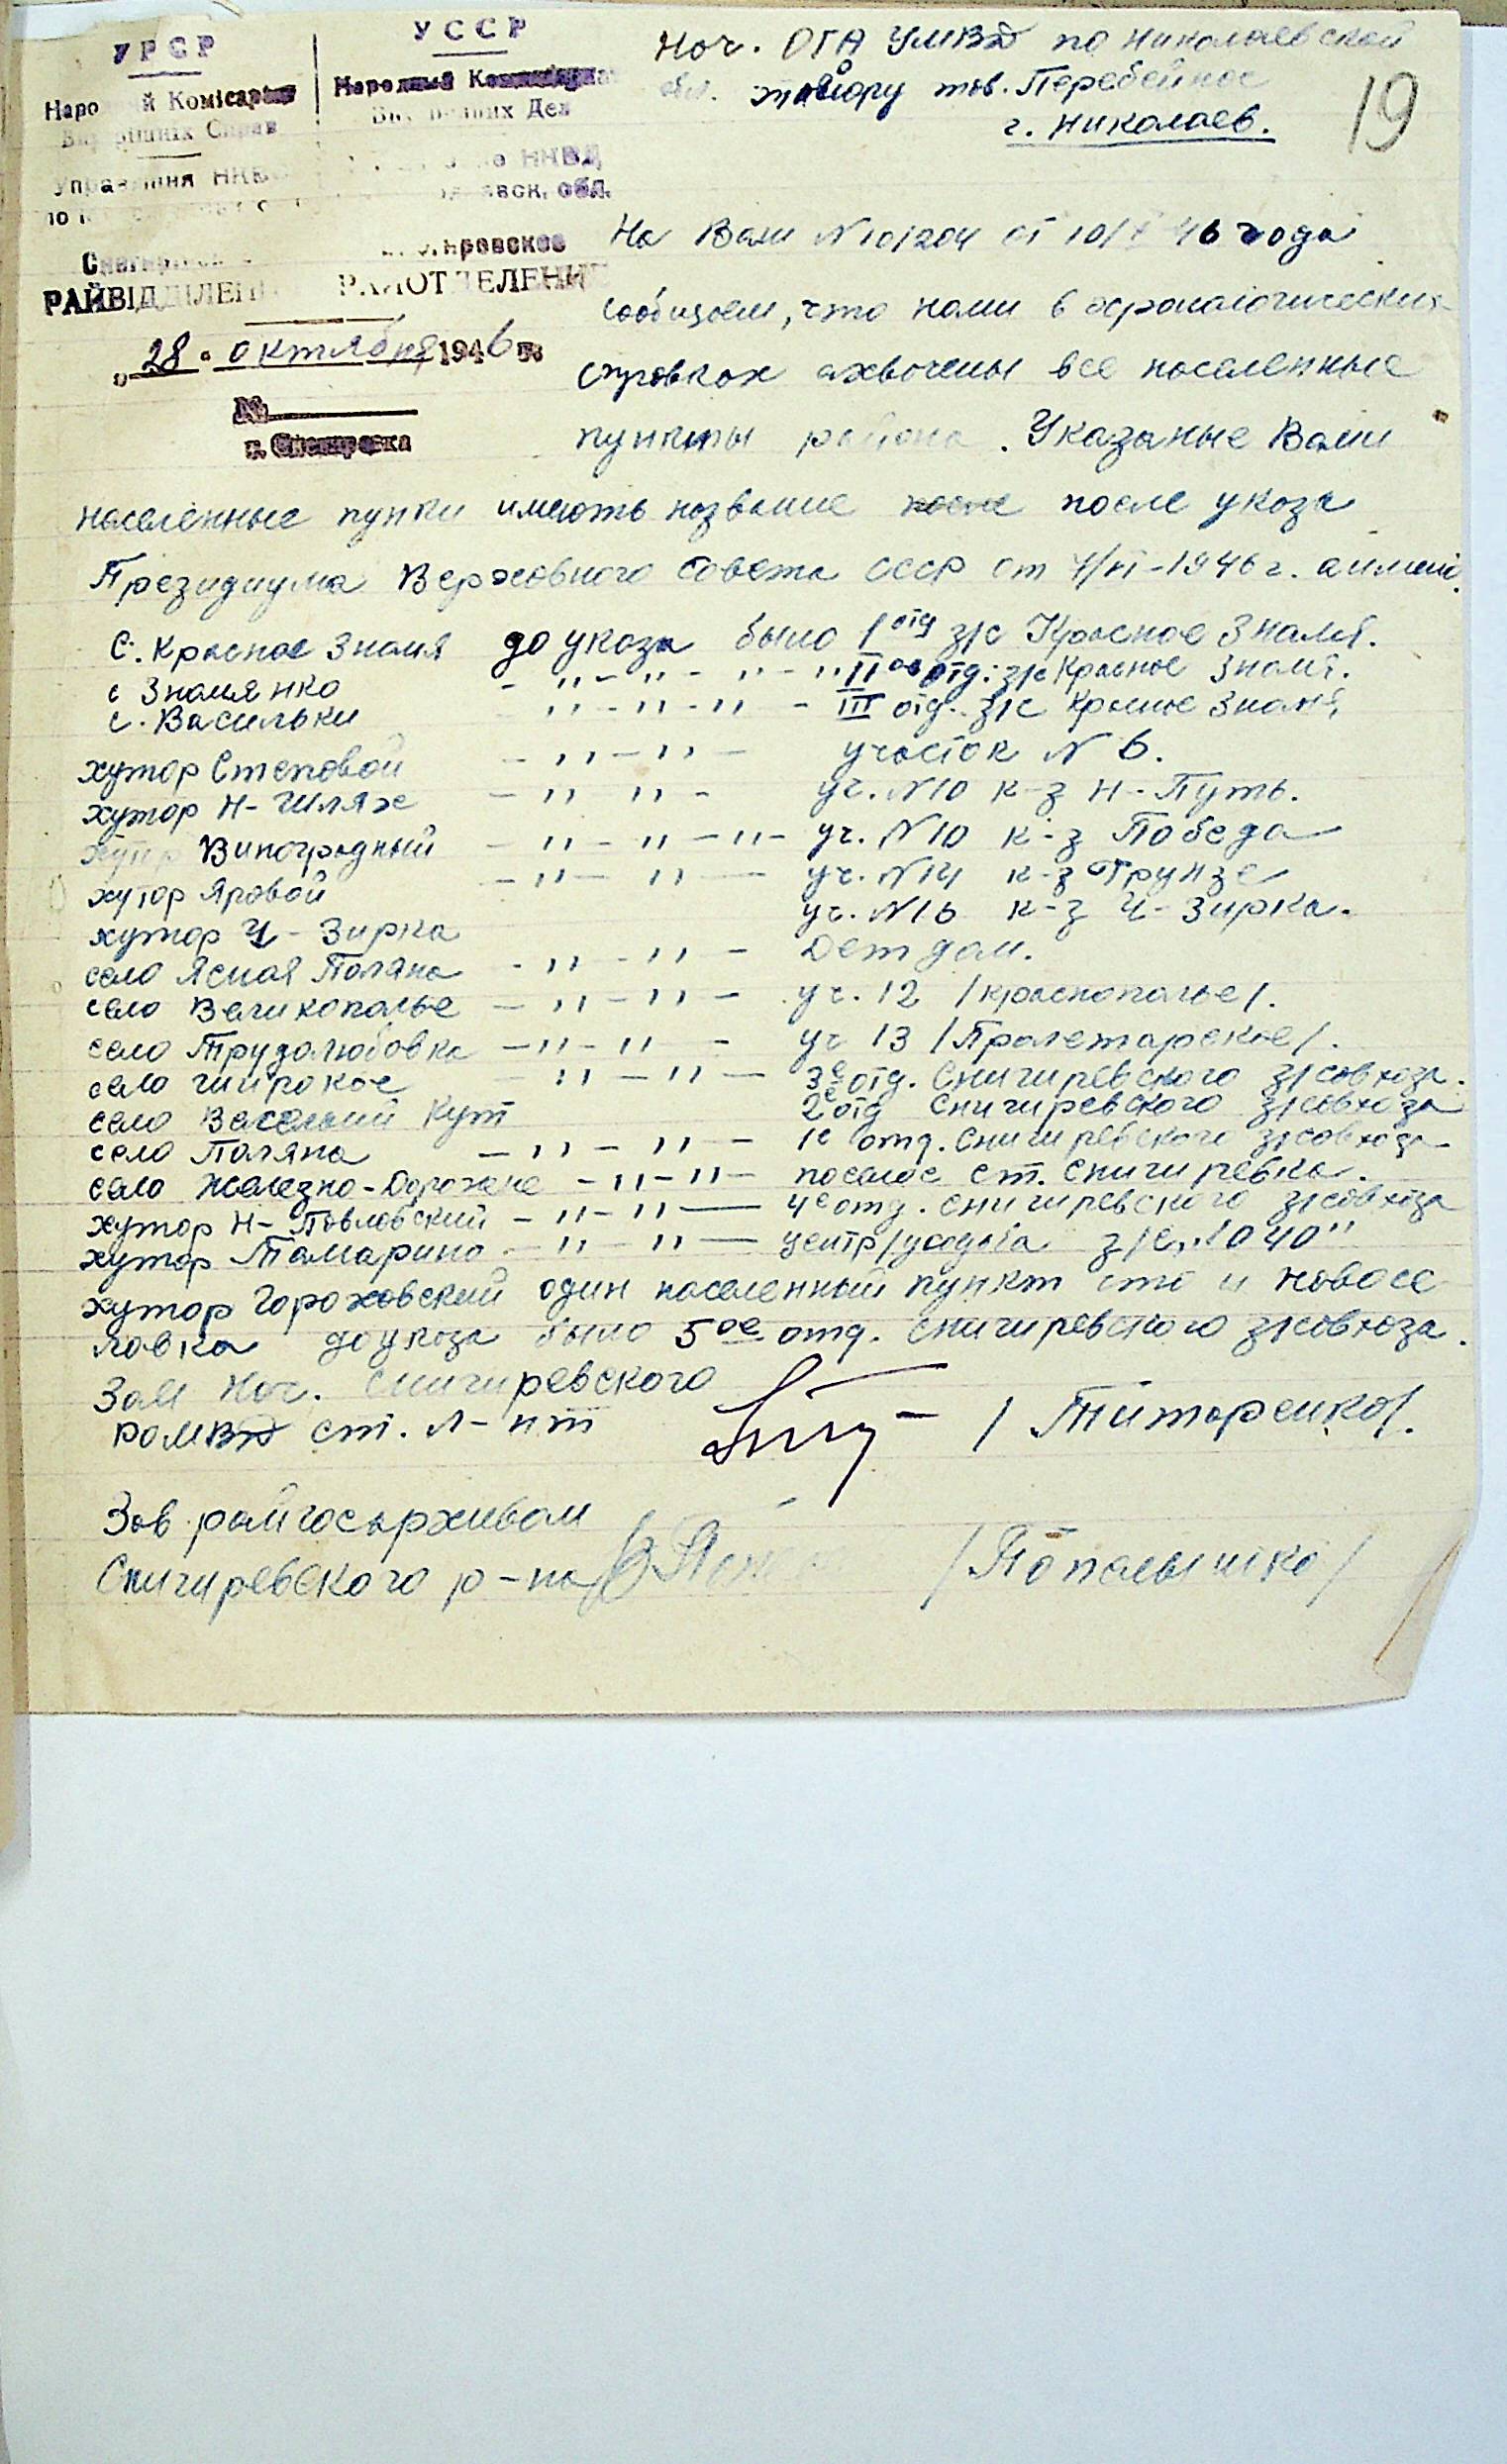 УРСР
УССР
Народный
РАЙВІДДІЛЕН
РАЙОТДЕЛЕНИ
28 октября 1946 г.
№
г. Снигиревка
Нач. ОГА УМВД по Николаевской
обл. майору тов. Перебейнос
г. Николаев.
19
На Ваш № 10/204 от 10/X 46 года
сообщаем, что нами в хронологических
справках охвочены все населенные
пункты района. Указаные Вами
населенные пункти имеють название после после указа
Президиума Верховного Совета СССР от 7/VI-1946 г. аимено.
с. Красное Знамя до указа было 1 отд з/с Красное Знамя.
с Знамянка - " - " - " - " II ое отд. з/с Красное Знамя.
с. Васильки " - " - " - III отд. з/с Красное Знамя,
хутор Степовой - " - " - участок N 6.
хутор Н-Шлях - " " - уч. N10 к-з Н-Путь.
хутор Виноградный - " - " - " - уч. N10 к-з Победа
хутор Яровой - " - " - уч. N14 к-з Фрунзе
хутор Ч-Зирка уч. N16 к-з Ч-Зирка.
село Ясная Поляна - " - " - Детдом.
село Великополье - " - " - уч. 12 /Краснополье/.
село Трудолюбовка - " - " - уч 13 /Пролетарское/.
село Широкое - " - " - 3е отд. Снигиревского з/совхоза.
село Веселый Кут 2е отд Снигиревского з/совхоза
село Поляна - " - " - 1е отд. Снигиревского з/совхоза
село Железно-Дорожне - " - " - поселос ст. Снигиревка.
хутор Н-Павловский - " - " - 4е отд. Снигиревского з/совхоза
хутор Тамарино - " - " - центр/усадьба з/с
хутор Гороховский один населенный пункт сто и Новосе
ловка до указа было 5ое отд. Снигиревского з/совхоза.
Зам Нач. Снигиревского
РОМВД ст. л-нт / Титаренко/.
Зав райгосархивам
Снигиревского р-на